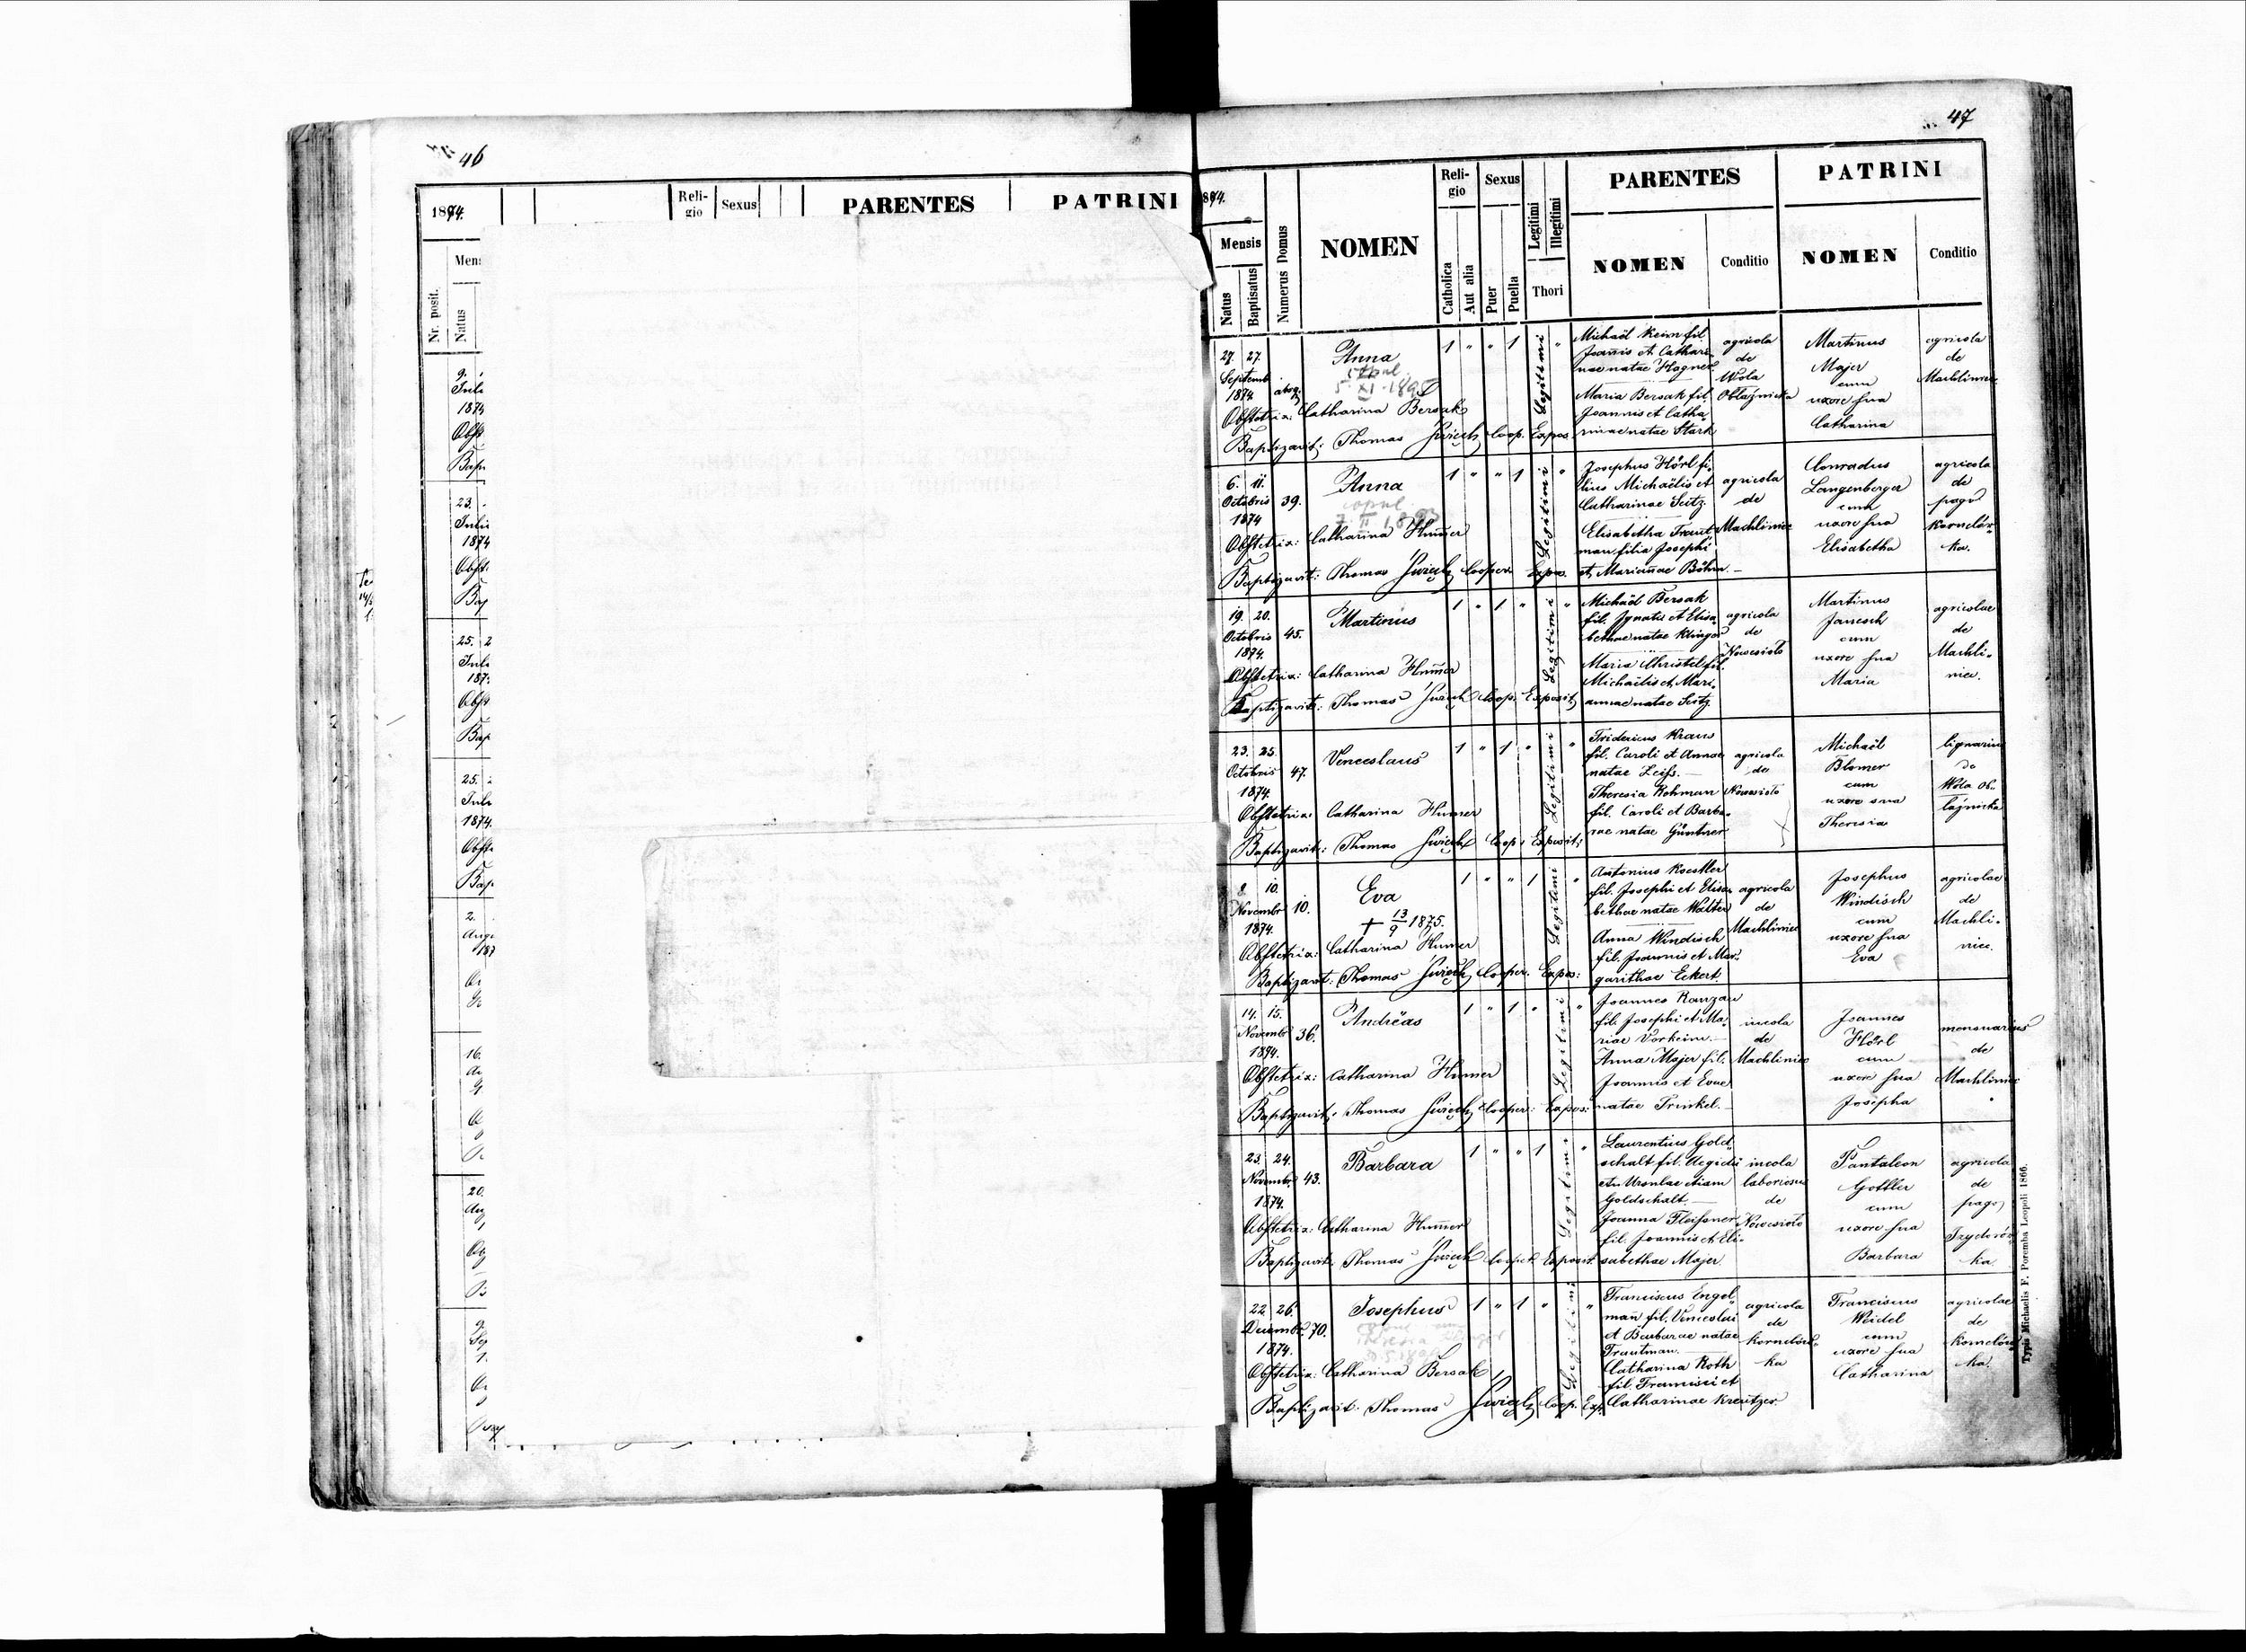 46
1874.
Reli-
gio
Sexus
PARENTES
PATRINI
Nr. posit.
Natus
9.
1874
23.
1874
25.
25.
1874.
2.
16.
20.
9.
47
1874.
Mensis
Natus
Baptisatus
Numerus Domus
NOMEN
Reli-
gio
Catholica
Aut alia
Sexus
Puer
Puella
Legitimi
Illegitimi
Thori
PARENTES
NOMEN
Conditio
PATRINI
NOMEN
Conditio
27. 27.
Septemb
1874
Anna
copul.
5. XI. 1895
1 " " 1 Legitimi "
Michaël Keim fil.
Joannis et Cathari-
nae natae Hagner
Maria Bersak fil.
Joannis et Catha-
rinae natae Stark
agricola
de
Wola
Obłaźnicka
Martinus
Majer
cum
uxore sua
Catharina
agricola
de
Machliniec
Obstetrix: Catharina Bersak
Baptizavit: Thomas Świech Coop. Expos.
6. 11.
Octobris
1874
39.
Anna
copul.
1 " " 1 Legitimi "
Josephus Hörl fi-
lius Michaëlis et
Catharinae Seitz.
Elisabetha Traut-
man filia Josephi
et Mariannae Böhm.
agricola
de
Machliniec
Conradus
Langenberger
cum
uxore sua
Elisabetha
agricola
de
pago
Kornelów-
ka.
Obstetrix: Catharina Hummer
Baptizavit: Thomas Świech Cooper. Expos.
19. 20.
Octobris
1874.
45.
Martinus
1 " 1 " Legitimi "
Michaël Bersak
fil. Ignatii et Elisa-
bethae natae Klinger
Maria Christel fil.
Michaëlis et Mari-
annae natae Seitz.
agricola
de
Nowesioło
Martinus
Janesch
cum
uxore sua
Maria
agricolae
de
Machli-
niec.
Obstetrix: Catharina Hummer
Baptizavit: Thomas Świech Coop. Exposit.
23. 25.
Octobris
1874.
47.
Venceslaus
1 " 1 " Legitimi "
Fridericus Kraus
fil. Caroli et Annae
natae Zeiss.
Theresia Rohman
fil. Caroli et Barba-
rae natae Güntner
agricola
de
Nowesioło
Michaël
Blomer
cum
uxore sua
Theresia
lignarius
de
Wola Ob-
łaźnicka
Obstetrix: Catharina Humer
Baptizavit: Thomas Świech Coop. Exposit:
10.
Novembr
1874.
10.
Eva
+ 13/9 1875.
1 " " 1 Legitimi "
Antonius Koestler
fil. Josephi et Elisa-
bethae natae Walter
Anna Windisch
fil. Joannis et Mar-
garithae Eckert.
agricola
de
Machliniec
Josephus
Windisch
cum
uxore sua
Eva
agricolae
de
Machli-
niec.
Obstetrix: Catharina Humer
Baptizavit: Thomas Świech Cooper. Expos:
14. 15.
Novembr
1874.
36.
Andréas
1 " 1 " Legitimi "
Joannes Ranzau
fil. Josephi et Ma-
riae Vorheim.
Anna Majer fil.
Joannis et Evae
natae Trinkel.
incola
de
Machliniec
Joannes
Hörl
cum
uxore sua
Josepha
mensuarius
de
Machliniec
Obstetrix: Catharina Humer
Baptizavit: Thomas Świech Cooper: Expos:
23. 24.
Novembr.
1874.
43.
Barbara
1 " " 1 Legitimi "
Laurentius Gold-
schalt fil. Aegidii
et Ursulae etiam
Goldschalt
Joanna Fleissner
fil. Joannis et Eli-
sabethae Majer
incola
laboriosus
de
Nowesioło
Pantaleon
Gottler
cum
uxore sua
Barbara
agricola
de
pago
Izydorów-
ka.
Obstetrix: Catharina Hummer
Baptizavit: Thomas Świech Cooper. Exposit.
22. 26.
Decembr.
1874.
70.
Josephus
1 " 1 " Legitimi "
Franciscus Engel-
mann fil. Venceslai
et Barbarae natae
Trautman.
Catharina Roth
fil. Francisci et
Catharinae Kreutzer
agricola
de
Kornelów-
ka
Franciscus
Weidel
cum
uxore sua
Catharina
agricolae
de
Kornelów-
ka.
Obstetrix: Catharina Bersak
Baptizavit: Thomas Świech Coop. Exp.
Typis Michaelis F. Poremba Leopoli 1866.